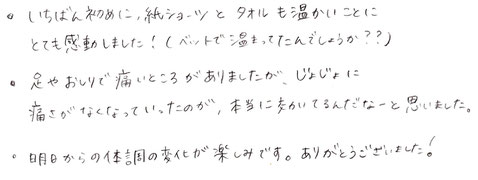 。いちばん初めに、紙ショーツとタオルも温かいことに
とても感動しました！（ベットで温まってたんでしょうか??）
・足やおしりで痛いところがありましたが、じょじょに
痛さがなくなっていったのが、本当に歩かいてるんだなーと思いました。
・明日からの体調の変化が楽しみです。ありがとうございました！